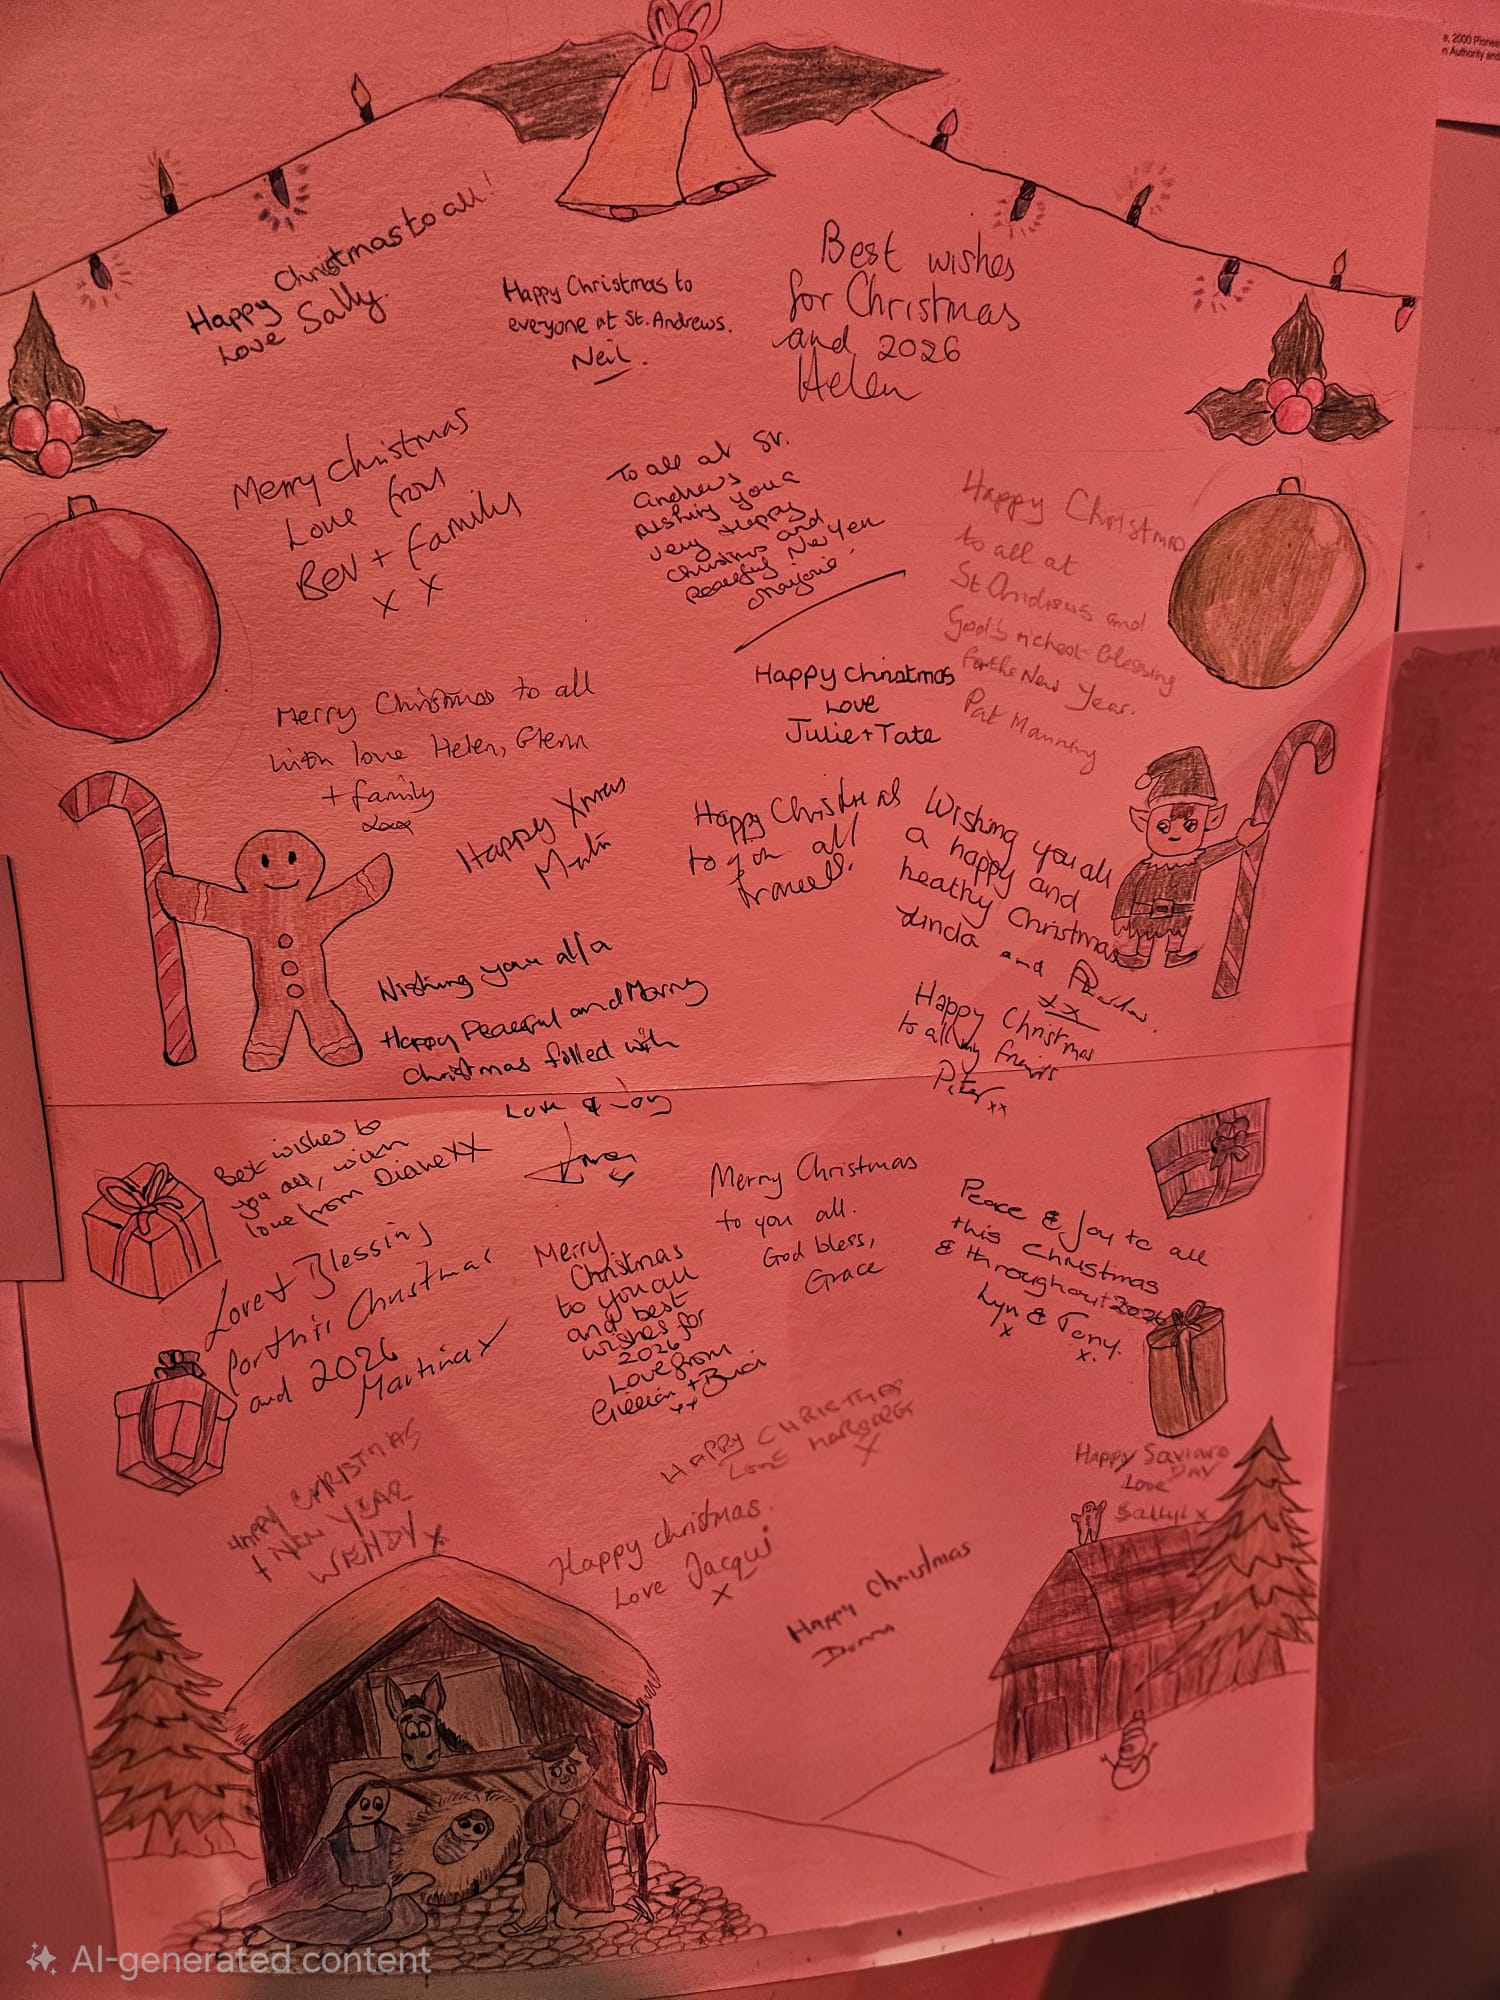 e, 2000 Pionee
n Authority and
Happy Christmas to all!
Love Sally
Happy Christmas to
everyone at St. Andrews.
Neil.
Best wishes
for Christmas
and 2026
Helen
Merry Christmas
Love from
Bev + family
x x
To all at St.
Andrews
wishing you a
very Happy
Christmas and
Peaceful New Year
Marjorie
Happy Christmas
to all at
St Andrews and
God's richest blessing
for the New Year.
Pat Manning
Happy Christmas
Love
Julie + Tate
Merry Christmas to all
with love Helen, Glenn
+ family
xxx
Happy Xmas
Happy Christmas
to you all
Wishing you all
a happy and
heathy Christmas
Linda and
xx
Wishing you all a
Happy Peaceful and Merry
Christmas filled with
Love & Joy
Happy Christmas
to all my friends
Peter xx
Best wishes to
you all, with
love from Diane XX
Love & Blessing
for this Christmas
and 2026
Martina x
Merry
Christmas
to you all
and best
wishes for
2026
Love from
Gillian +
xx
Merry Christmas
to you all.
God bless,
Grace
Peace & Joy to all
this Christmas
& throughout 2026
Lyn & Tony.
x x.
HAPPY CHRISTMAS
+ NEW YEAR
WENDY x
HAPPY CHRISTMAS
LOVE
x
Happy christmas.
Love Jacqui
x
Happy Christmas
Donna
Happy Saviours
DAY
Love
Sallyl x
AI-generated content